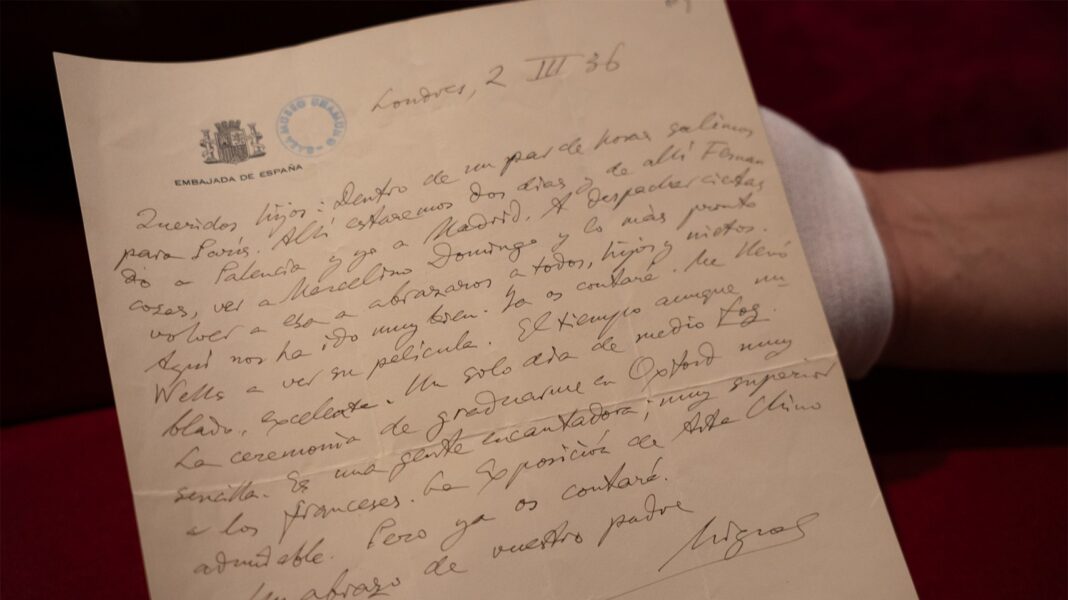 Londres, 2 III 36
CASA MUSEO UNAMUNO
EMBAJADA DE ESPAÑA
Queridos hijos: Dentro de un par de horas salimos
para París. Allí estaremos dos días y de allí Fernan
do a Palencia y yo a Madrid. A despachar ciertas
cosas, ver a Marcelino Domingo y lo más pronto
volver a esa a abrazaros a todos, hijos y nietos.
Aquí nos ha ido muy bien. Ya os contaré. Me llevó
Wells a ver su película. El tiempo aunque nu
blado, excelente. Un solo día de medio fog.
La ceremonia de graduarme en Oxford muy
sencilla. Es una gente encantadora; muy superior
a los franceses. La Exposición de Arte Chino
admirable. Pero ya os contaré.
Un abrazo de vuestro padre
Miguel